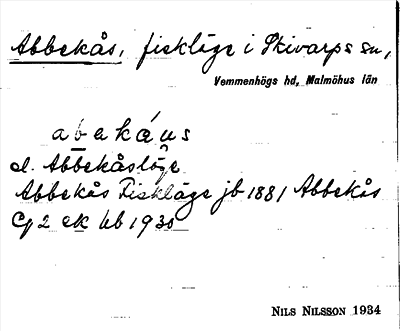 Abbekås, fiskläge i Skivarps sn,
Vemmenhögs hd, Malmöhus län
abekáus
el. Abbekåsläge
Abbekås Fiskläge jb 1881 Abbekås
Gj 2 ek kb 1930
NILS NILSSON 1934